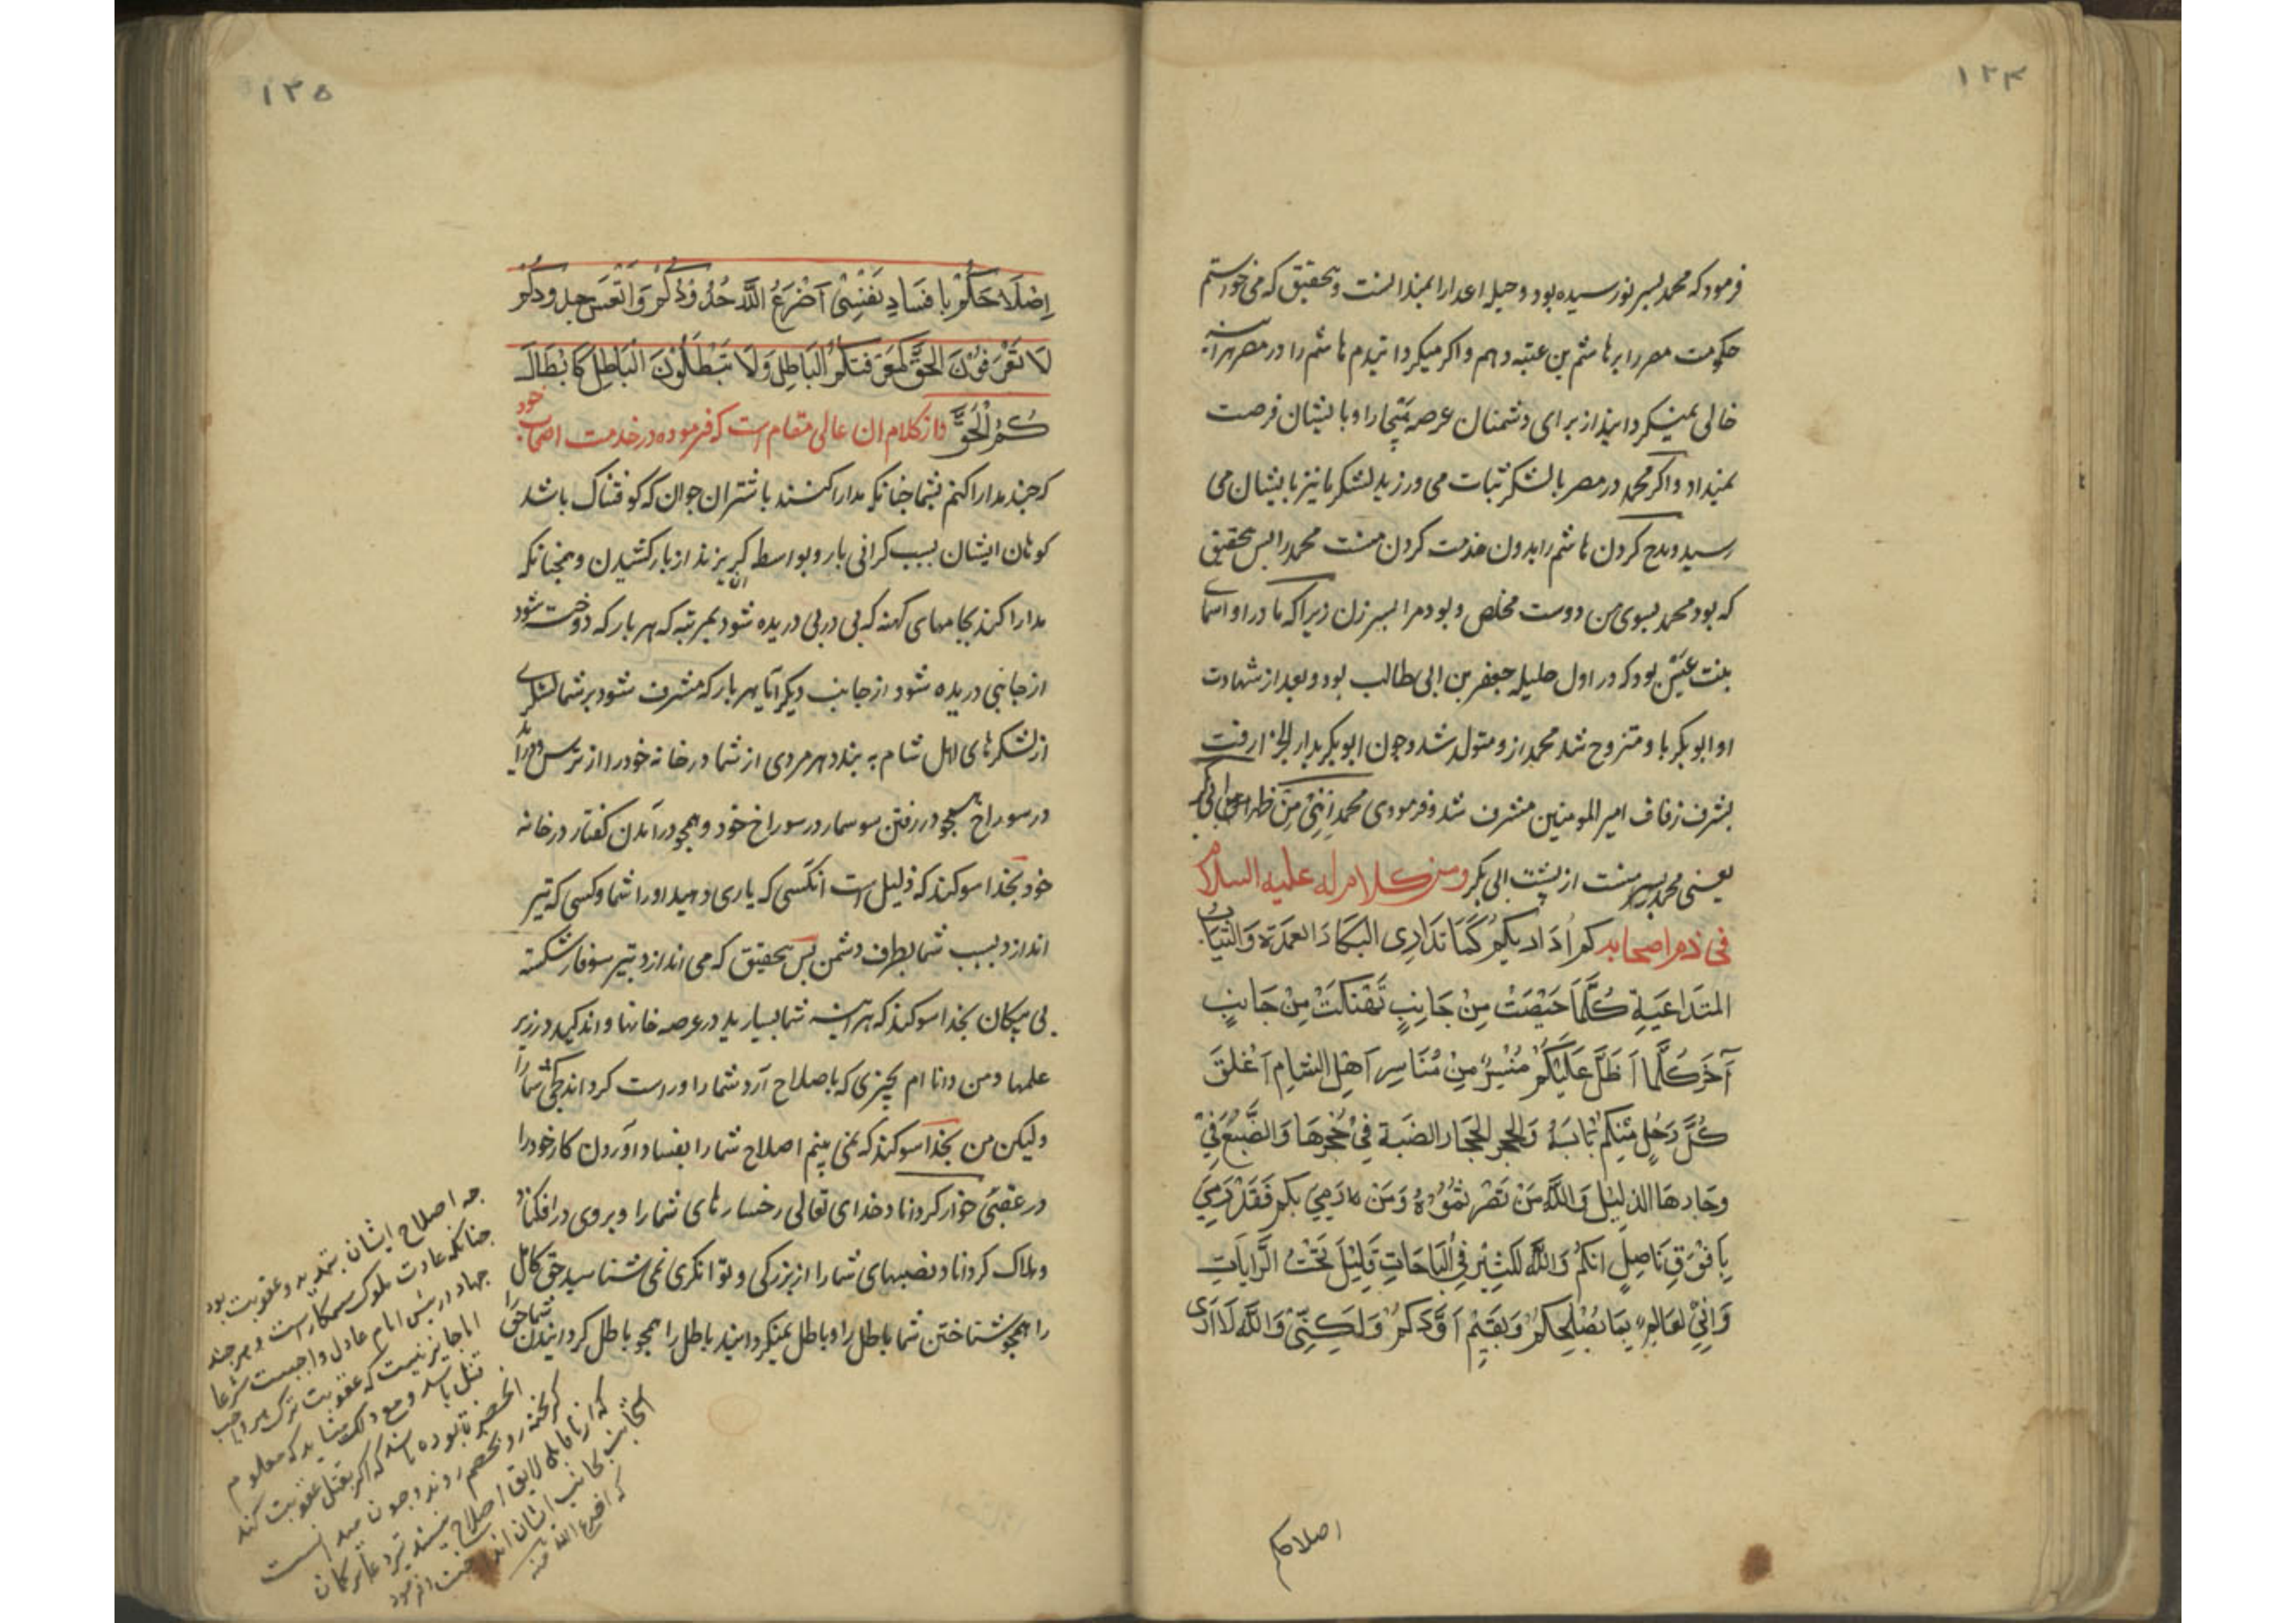 ۱۳۴
فرمود که محمد پسر نورسیده بود و حیل اعدا را نمیدانست و بتحقیق که می خواستم
حکومت مصر را برهاشم بن عتبه دهم و اکر میکردانیدم هاشم را در مصر هراینه
خالی نمیکردانید از برای دشمنان عرصه را و بایشان فرصت
نمیداد و اکر محمد در مصر با لشکر ثبات می ورزید لشکر ما نیز بایشان می
رسید و مدح کردن هاشم را بدون مذمت کردن منست محمد را پس بتحقیق
که بود محمد بسوی من دوست مخلص و بود مرا پسر زن زیرا که مادر او اسمای
بنت عمیس بود که در اول حلیله جعفر بن ابی طالب بود و بعد از شهادت
او ابوبکر با و متزوج شد محمد ازو متولد شد و چون ابوبکر بدار الجزا رفت
بشرف زفاف امیر المومنین مشرف شد و فرمودی محمد ابنی من ظهر ابی بکر
یعنی محمد پسر منست از پشت ابی بکر ومن کلام له علیه السلام
فی ذم اصحابه کم اداریکم کما تداری البکار العمدة والثیاب
المتداعیة کلما حیصت من جانب تهتکت من جانب
آخر کلما اظل علیکم منسر من مناسر اهل الشام اغلق
کل رجل منکم بابه وانجحر انجحار الضبة فی جحرها والضبع فی
وجارها الذلیل والله من نصرتموه ومن رمی بکم فقد رمی
بافوق ناصل انکم والله لکثیر فی الباحات قلیل تحت الرایات
وانی لعالم بما یصلحکم ویقیم اودکم ولکنی والله لا اری
اصلاحکم
۱۳۵
اصلاحکم بافساد نفسی اضرع الله خدودکم واتعس جدودکم
لا تعرفون الحق کمعرفتکم الباطل ولا تبطلون الباطل کابطالـ
ـکم الحق واز کلام ان عالی مقام است که فرموده در خدمت اصحاب خود
که چند مدارا کنم بشما چنانکه مدارا کنند با شتران جوان که کوفتناک باشد
کوهان ایشان بسبب کرانی بار و بواسطه ان بریزند از بار کشیدن و همچنانکه
مدارا کنند بجامهای کهنه که پی در پی دریده شود بمرتبه که هر بار که دوخته شود
از جانبی دریده شود از جانب دیکر آیا هر بار که مشرف شود بر شما لشکری
از لشکرهای اهل شام به بندد هر مردی از شما در خانه خود را از ترس و دراید
در سوراخ همچو در رفتن سوسمار در سوراخ خود و همچو درآمدن کفتار در خانه
خود بخدا سوکند که ذلیل است انکسی که یاری دهید او را شما و کسی که تیر
اندازد بسبب شما بطرف دشمن پس بتحقیق که می اندازد بتیر سوفار شکسته
بی پیکان بخدا سوکند که هراینه شما بسیارید در عرصه خانها و اندکید در زیر
علمها و من دانا ام بچیزی که باصلاح آرد شما را و راست کرداند کجی شما را
ولیکن من بخدا سوکند که نمی بینم اصلاح شما را بفساد آوردن کار خود را
در عقبی خوار کرداناد خدای تعالی رخسارهای شما را و بروی درافکناد
و هلاک کرداناد نصیبهای شما را از بزرکی و توانکری نمی شناسید حق کامل
را همچو شناختن شما باطل را و باطل نمیکردانید باطل را همچو باطل کردانیدن شما حق را
چه اصلاح ایشان بتهدید و عقوبت بود
چنانکه عادت ملوک ستمکار است و هرچند
جهاد در پیش امام عادل واجبست شرعا
اما جایز نیست که عقوبت ترک هر واجب
قتل باشد و مع ذلک شاید که معلوم
انحضرت بوده باشد که اکر بقتل عقوبت کند
کریخته رو بخصم روند و چون میدانست